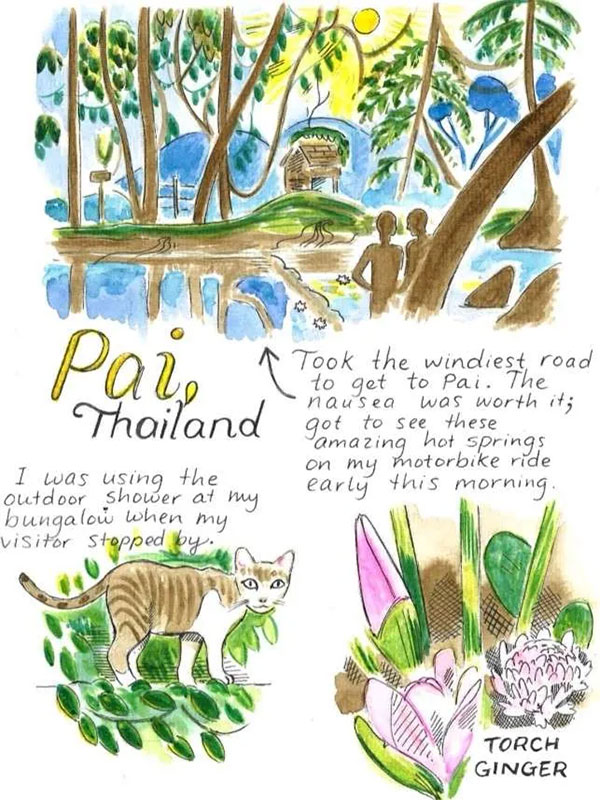 Pai,
Thailand
Took the windiest road
to get to Pai. The
nausea was worth it;
got to see these
amazing hot springs
on my motorbike ride
early this morning.
I was using the
outdoor shower at my
bungalow when my
visitor stopped by.
TORCH
GINGER